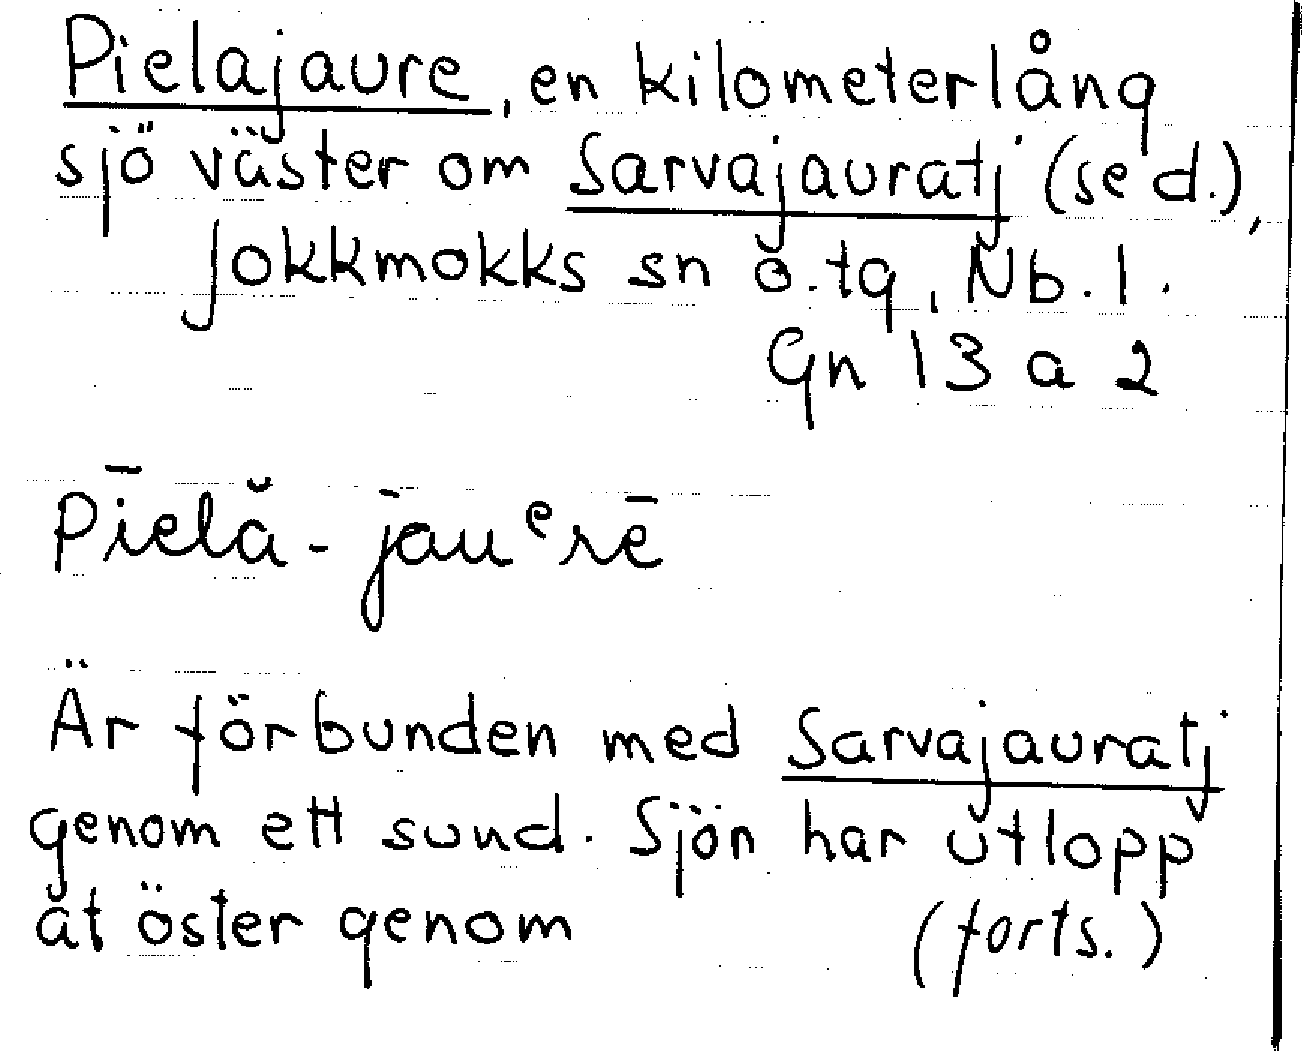 Pielajaure, en kilometerlång
sjö väster om Sarvajauratj (se d.),
Jokkmokks sn o. tg, Nb. l.
Gn 13 a 2
Pīelă-jauᵉrē
Är förbunden med Sarvajauratj
genom ett sund. Sjön har utlopp
åt öster genom (forts.)